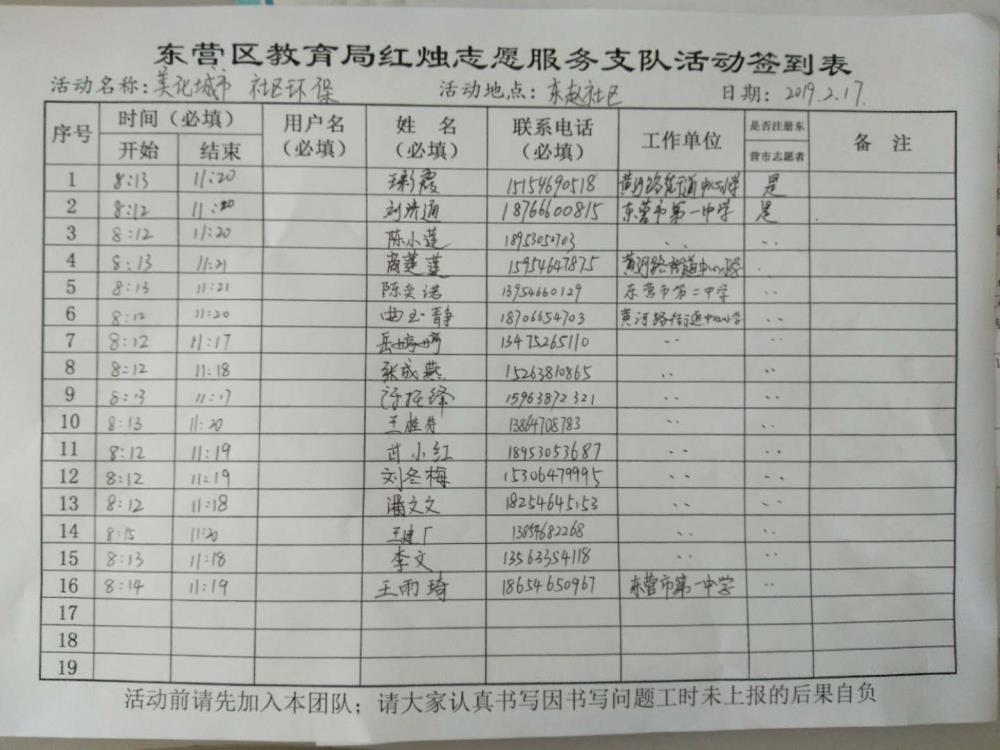 东营区教育局红烛志愿服务支队活动签到表
活动名称：美化城市 社区环保 活动地点：东赵社区 日期：2019.2.17.
序号 时间（必填） 用户名（必填） 姓 名（必填） 联系电话（必填） 工作单位 是否注册东营市志愿者 备 注
开始 结束
1 8:13 11:20 15154690518 黄河路街道中心小学 是
2 8:12 11:20 刘洪通 18766600815 东营市第一中学 是
3 8:12 11:20 陈小莲 〃 〃
4 8:13 11:21 商莲莲 15954647875 黄河路街道中心小学 〃
5 8:13 11:21 陈奕诺 13954660129 东营市第二中学 〃
6 8:12 11:20 曲玉静 18706654703 黄河路街道中心小学 〃
7 8:12 11:17 岳婷婷 13475265110 〃 〃
8 8:12 11:18 张成燕 15263810865 〃 〃
9 8:13 11:17 15963872321 〃 〃
10 8:13 11:20 王桂芹 13864708783 〃 〃
11 8:12 11:19 小红 18953053687 〃 〃
12 8:12 11:19 刘冬梅 15306479995 〃 〃
13 8:12 11:18 潘文文 18254645153 〃 〃
14 8:15 11:20 13854682268 〃 〃
15 8:13 11:18 李文 13563354118 〃 〃
16 8:14 11:19 王雨琦 18654650967 东营市第一中学 〃
17
18
19
活动前请先加入本团队；请大家认真书写因书写问题工时未上报的后果自负